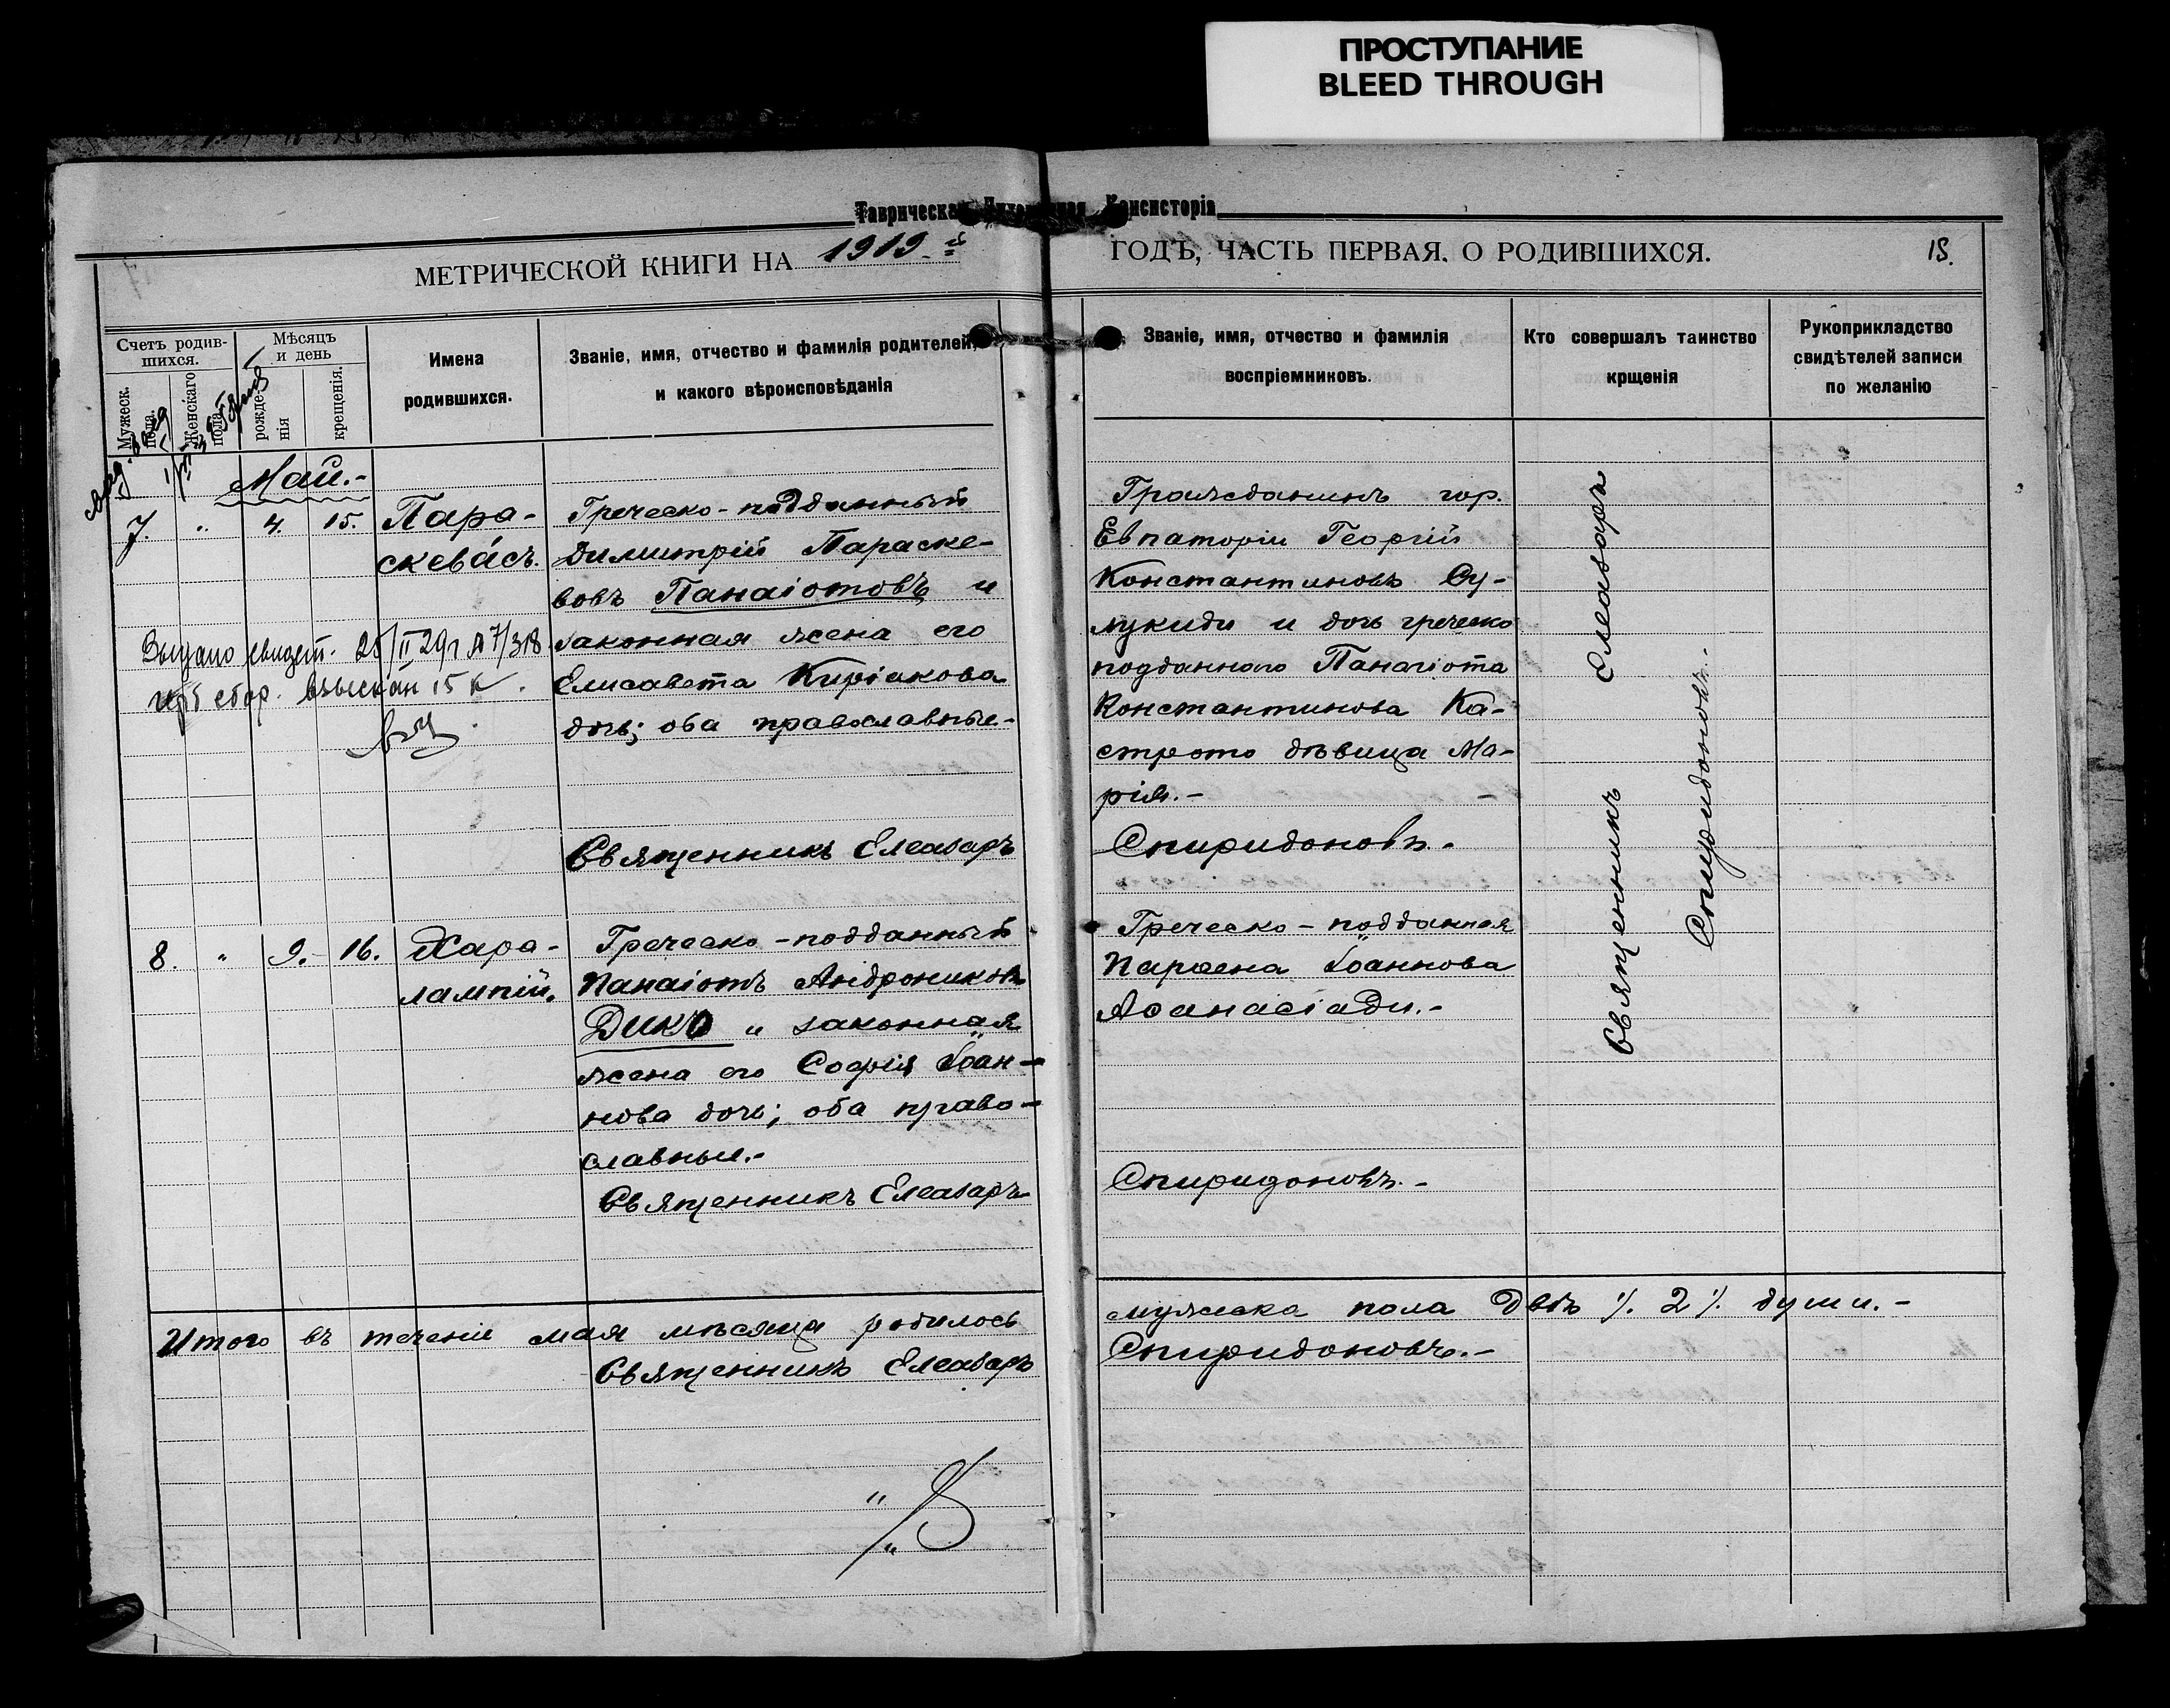 ПРОСТУПАНИЕ
BLEED THROUGH
Таврическая Духовная Консисторія
МЕТРИЧЕСКОЙ КНИГИ НА 1919-й ГОДЪ, ЧАСТЬ ПЕРВАЯ. О РОДИВШИХСЯ. 18.
Счетъ родив-
шихся.
Мужеск.
пола.
Женскаго
пола
Мѣсяцъ
и день
рожде-
нія
крещенія.
Имена
родившихся.
Званіе, имя, отчество и фамилія родителей,
и какого вѣроисповѣданія
Званіе, имя, отчество и фамилія
воспріемниковъ.
Кто совершалъ таинство
крщенія
Рукоприкладство
свидѣтелей записи
по желанію
Май.-
7. " 4. 15. Пара-
скева́съ.
Греческо-подданный
Димитрій Параске-
вовъ Панаіотовъ и
законная жена его
Елисавета Киріакова
дочь; оба православные.-
Священникъ Елеазаръ
Выдано свидет. 25/II 29г № 7/318
герб сбор. взыскан 15 к.
Гражданинъ гор.
Евпаторіи Георгій
Константиновъ Су-
лукиди и дочь греческо
подданнаго Панагіота
Константинова Ка-
строто дѣвица Ма-
рія.-
Спиридоновъ.-
Священникъ Елеазаръ
Спиридоновъ.-
8. " 9.- 16. Хара-
лампій.
Греческо-подданный
Панаіотъ Андрониковъ
Дико и законная
жена его Софія Іоан-
нова дочь; оба право-
славные.-
Священникъ Елеазаръ
Греческо-подданная
Парѳена Іоаннова
Аѳанасіади.-
Спиридоновъ.-
Итого въ теченіе мая мѣсяца родилось мужеска пола двѣ ٪ 2 ٪ души.-
Священникъ Елеазаръ Спиридоновъ.-